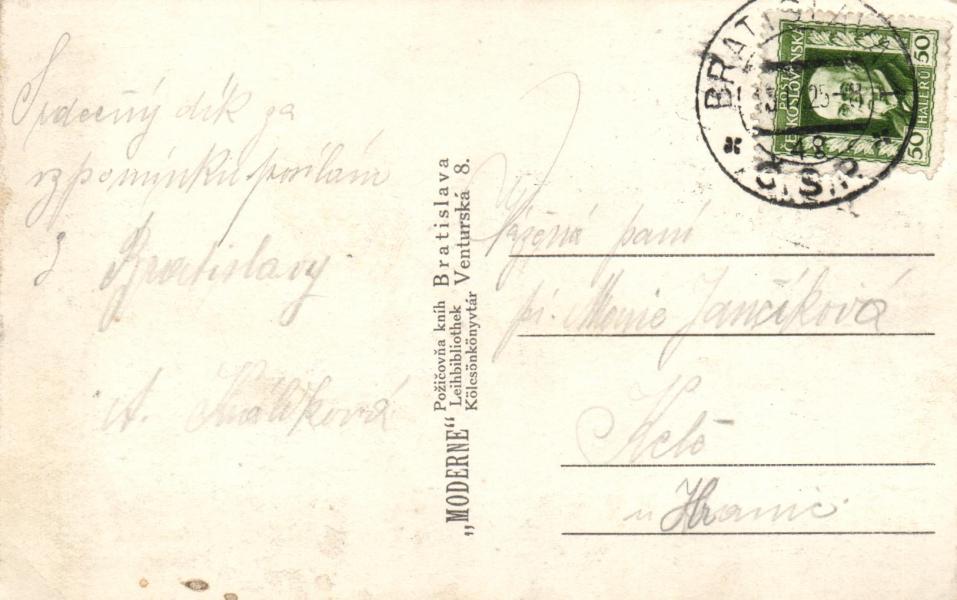 Srdečný dík za
vzpomínku posílám
z Bratislavy
A. Králíková
„MODERNE“
Požičovňa kníh
Leihbibliothek
Kölcsönkönyvtár
Bratislava
Venturská 8.
Vážená paní
pí. Marie Jančíková
Kelč
u Hranic
BRATISLAVA
25
48
Č.S.R.
POŠTA
ČESKOSLOVENSKÁ
50 HALÉŘŮ 50